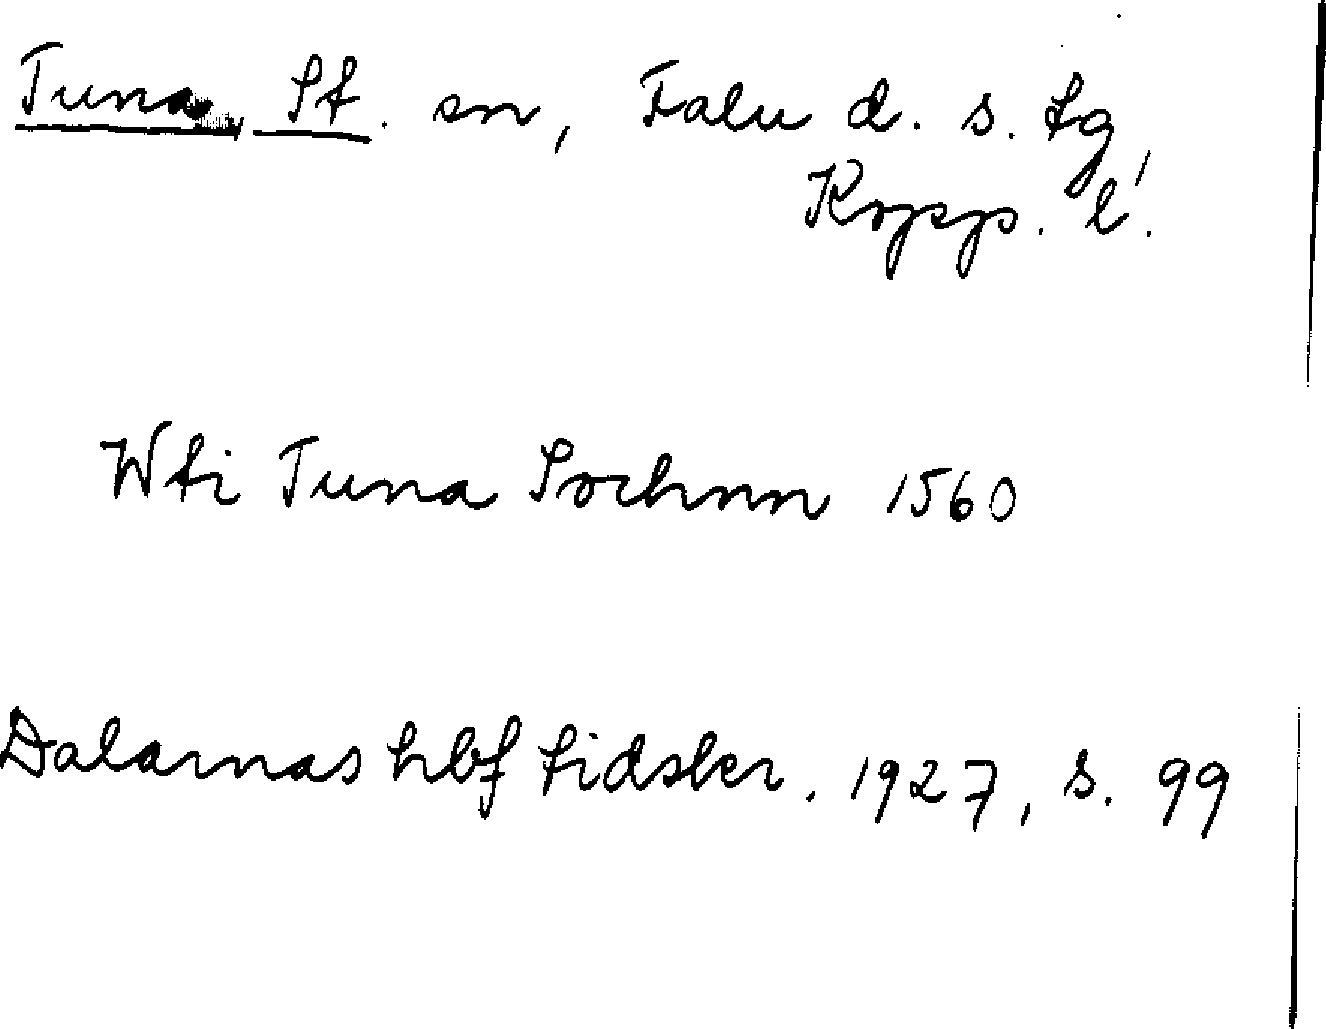 Tuna, St. sn, Falu d. s. tg
Kopp. l.
Wti Tuna Sochnn 1560
Dalarnas hbf tidskr. 1927, s. 99